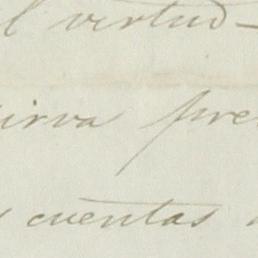 l virtud-
irva pre
cuentas